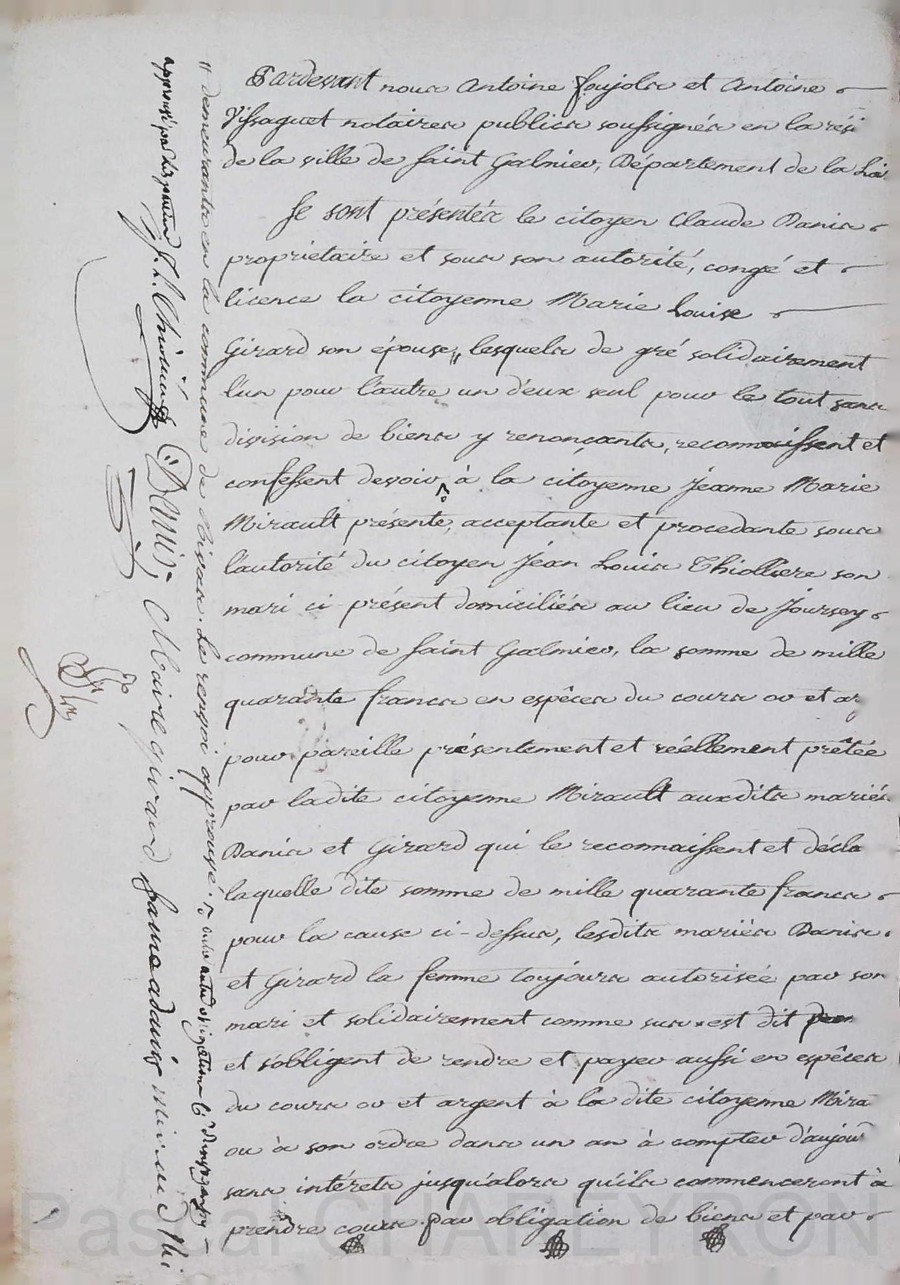 Pardevant nous Antoine Poujols et Antoine
Vissaguet notaires publics soussignés en la rési
de la ville de Saint Galmier, Département de la Loi
Se sont présentés le citoyen Claude Danis
propriétaire et sous son autorité, congé et
licence la citoyenne Marie Louise
Girard son épouse, " lesquels de gré solidairement
l'un pour l'autre un d'eux seul pour le tout sans
division de biens y renonçants, reconnaissent et
confessent devoir à la citoyenne Jeanne Marie
Mirault présente, acceptante et procedante sous
l'autorité du citoyen Jean Louis Thiolliere son
mari ci-présent domiciliés au lieu de Joursey
commune de Saint Galmier, la somme de mille
quarante francs en espèces du cours or et ar
pour pareille présentement et réellement prêtée
par ladite citoyenne Mirault auxdits mariés
Danis et Girard qui le reconnaissent et décla
laquelle dite somme de mille quarante francs
pour la cause ci-dessus, lesdits mariés Danis
et Girard la femme toujours autorisée par son
mari et solidairement comme sus est dit
et s'obligent de rendre et payer aussi en espèces
du cours or et argent à la dite citoyenne Mira
ou à son ordre dans un an à compter d'aujour
sans intérets jusqu'alors qu'ils commenceront à
prendre cours par obligation de biens et par
" demeurants en la commune de Rivas. Le renvoi approuvé.
Pascal CHAPEYRON